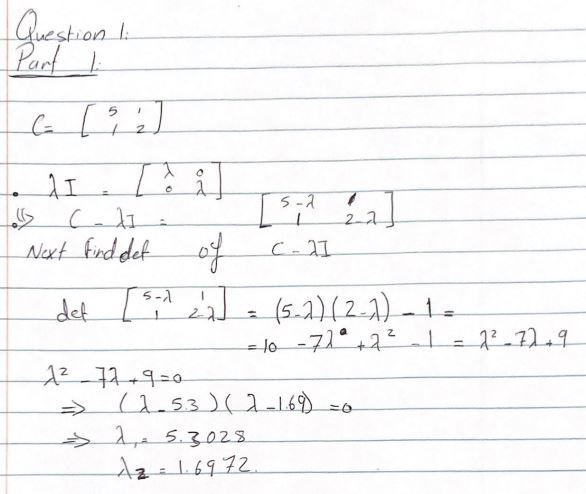 Question 1:
Part 1:
C = [ 5 1 ; 1 2 ]
• λI = [ λ 0 ; 0 λ ]
⇒ C - λI = [ 5-λ 1 ; 1 2-λ ]
Next find det of C - λI
det [ 5-λ 1 ; 1 2-λ ] = (5-λ)(2-λ) - 1 =
= 10 - 7λ + λ² - 1 = λ² - 7λ + 9
λ² - 7λ + 9 = 0
⇒ (λ - 5.3)(λ - 1.69) = 0
⇒ λ₁ = 5.3028
λ₂ = 1.6972.